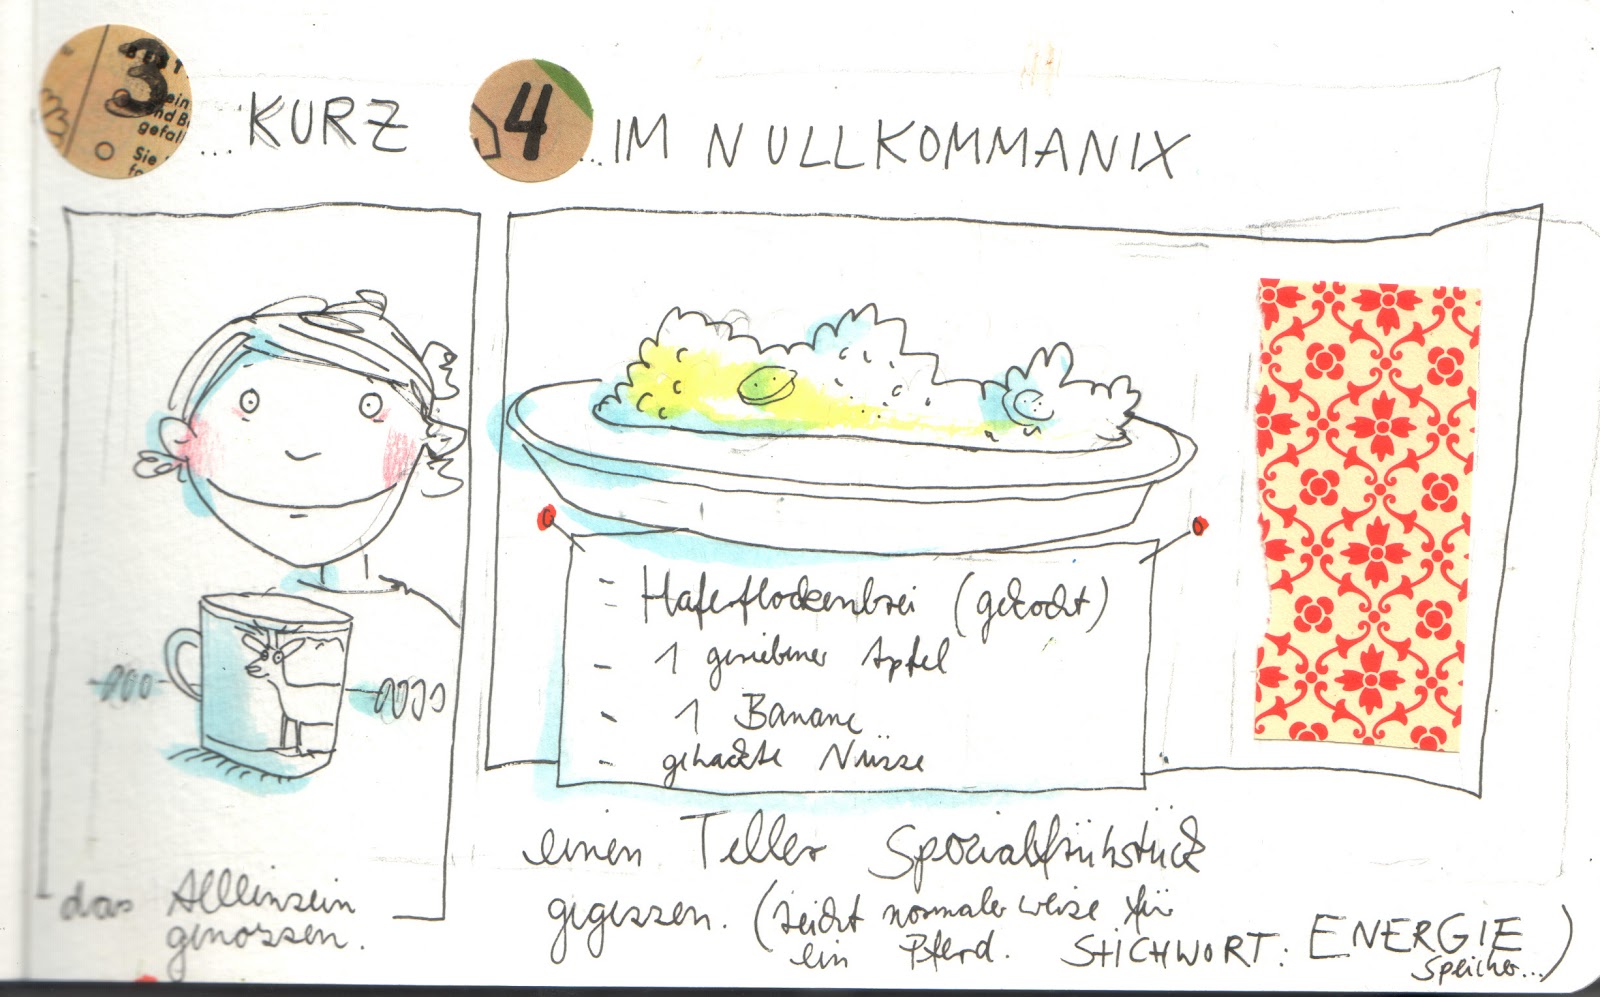 3
...KURZ
das Alleinsein
genossen.
4
...IM NULLKOMMANIX
- Haferflockenbrei (gekocht)
- 1 geriebener Apfel
- 1 Banane
- gehackte Nüsse
einen Teller Spezialfrühstück
gegessen. (reicht normalerweise für
ein Pferd. STICHWORT: ENERGIE
Speicher...)